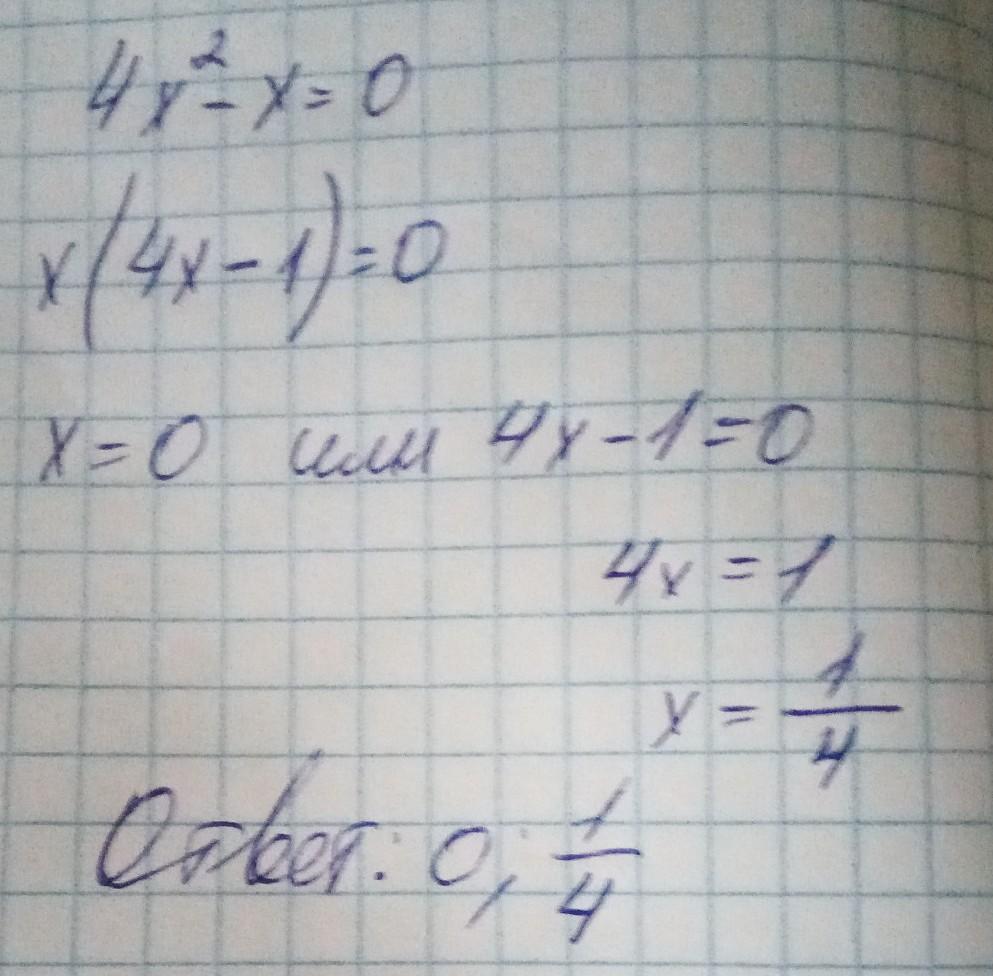 4x² - x = 0
x(4x - 1) = 0
x = 0 или 4x - 1 = 0
4x = 1
x = 1/4
Ответ: 0; 1/4